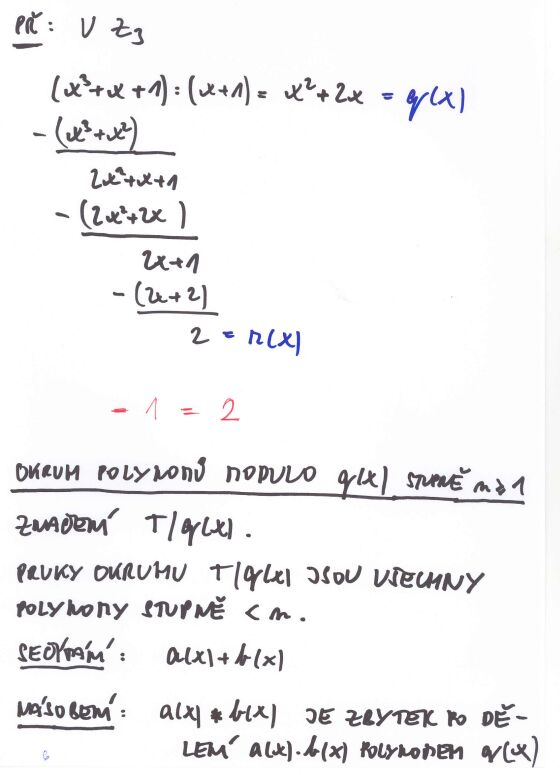 PŘ: V Z₃
(x³+x+1):(x+1) = x²+2x = q(x)
-(x³+x²)
2x²+x+1
-(2x²+2x)
2x+1
-(2x+2)
2 = r(x)
-1 = 2
OKRUH POLYNOMŮ MODULO q(x) STUPNĚ n≥1
ZNAČENÍ T/q(x).
PRVKY OKRUHU T/q(x) JSOU VŠECHNY
POLYNOMY STUPNĚ < n.
SEČÍTÁNÍ: a(x)+b(x)
NÁSOBENÍ: a(x)*b(x) JE ZBYTEK PO DĚ-
LENÍ a(x).b(x) POLYNOMEM q(x)
6